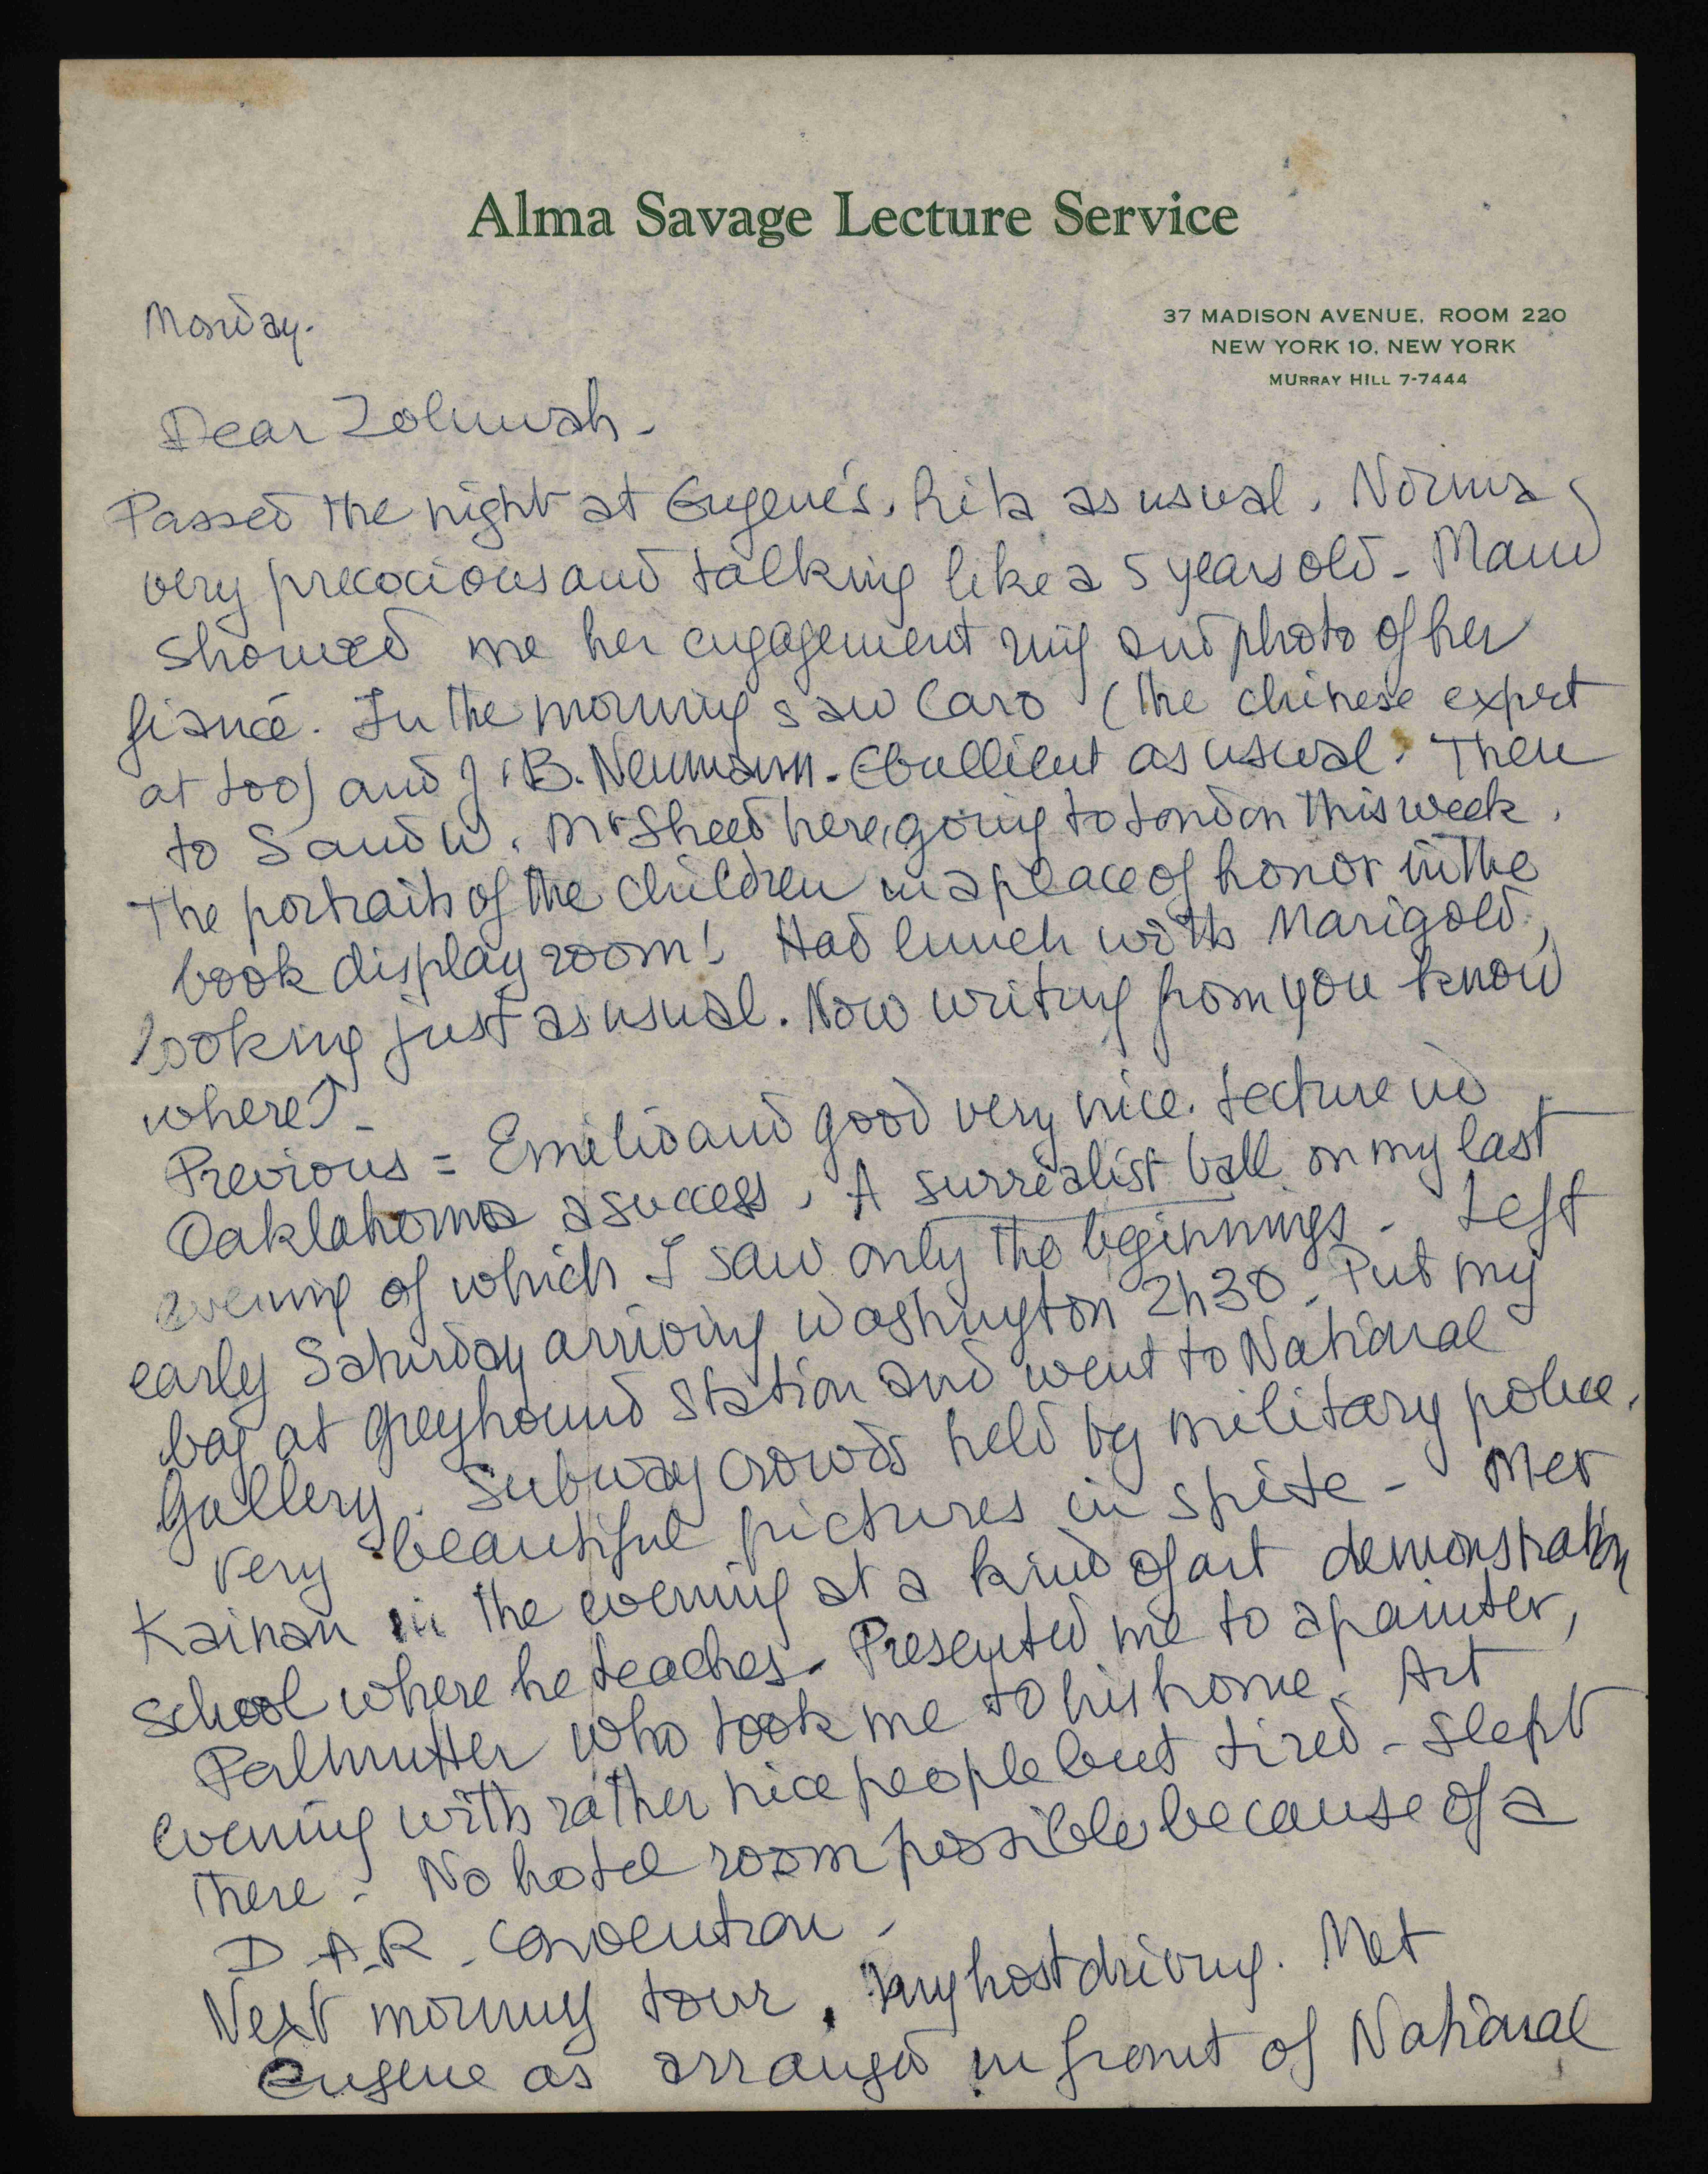 Alma Savage Lecture Service
37 MADISON AVENUE, ROOM 220
NEW YORK 10, NEW YORK
MURRAY HILL 7-7444
Monday.
Dear Zohmah.
Passed the night at Eugene's, Rita as usual. Norma
very precocious and talking like a 5 years old - Maud
showed me her engagement ring and photo of her
fiancé. In the morning saw Caro (the chinese expert
at too) and J.B. Neumann. Ebullient as usual. Then
to S and W. Mr Sheed here, going to London this week.
The portraits of the children in a place of honor in the
book display room! Had lunch with Marigold,
looking just as usual. Now writing from you know
where? -
Previous = Emilio and good very nice. Lecture in
Oaklahoma a success. A surrealist ball on my last
evening of which I saw only the beginnings. Left
early Saturday arriving Washington 2h30. Put my
bag at greyhound station and went to National
Gallery. Subway crowds held by military police.
Very beautiful pictures in spite - Met
Kainan in the evening at a kind of art demonstration
school where he teaches. Presented me to a painter,
Perlmutter who took me to his home. Art
evening with rather nice people but tired - slept
there. No hotel room possible because of a
D.A.R. convention -
Next morning tour, my host driving. Met
Eugene as arranged in front of National